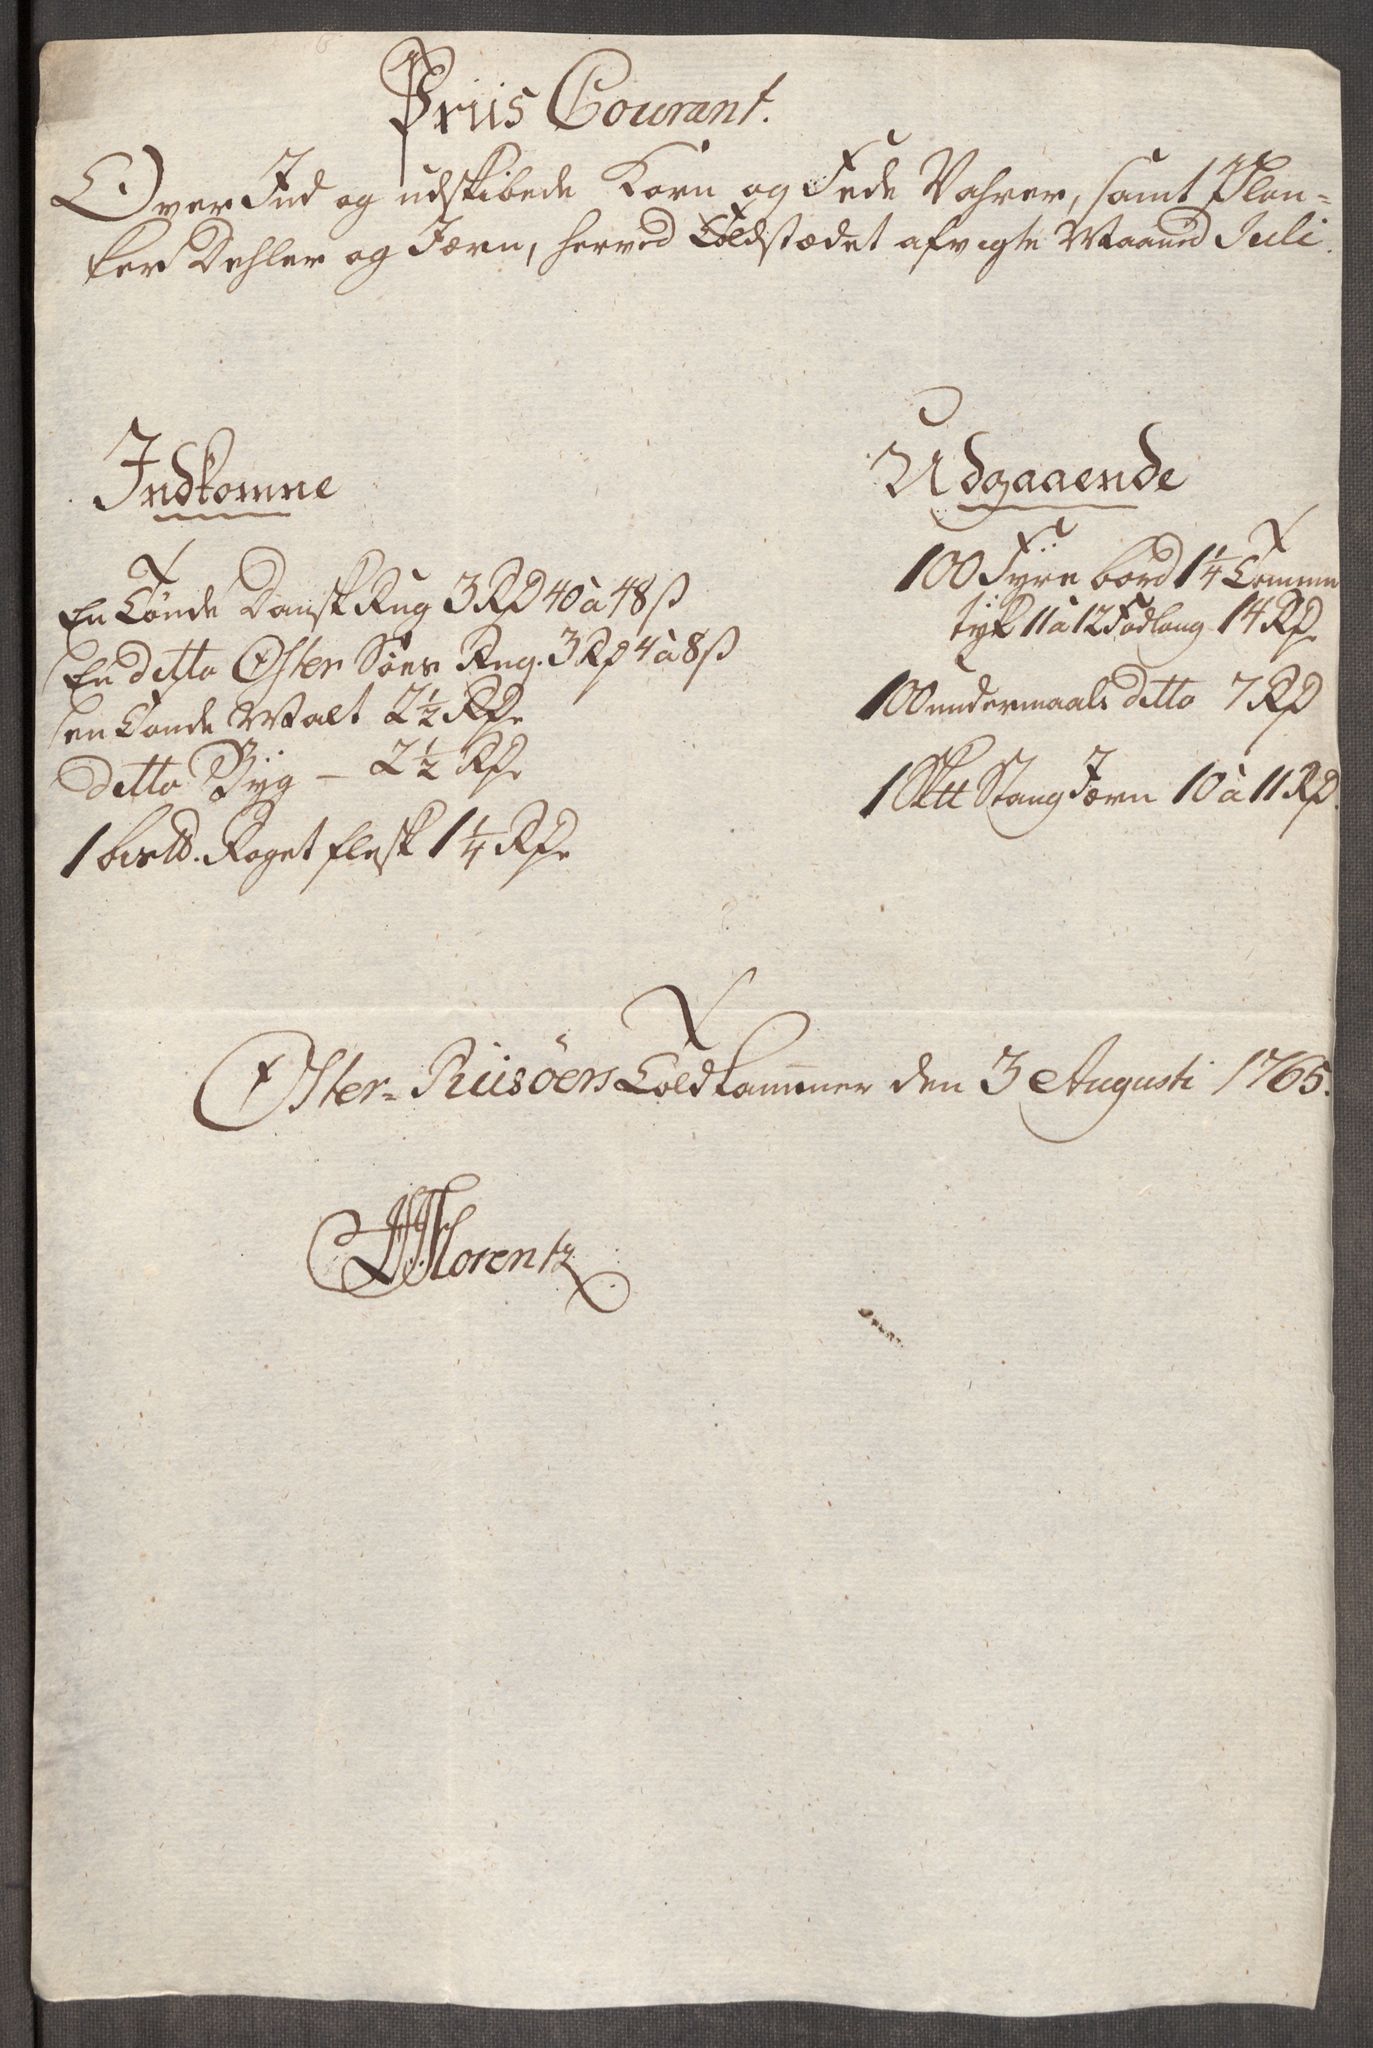 Priis Courant.
Over Ind og udskibede Korn og Fede Vahrer, samt Plan=
ker Dehler og Jærn, herved Toldstædet afvigte Maaned Juli.
Indkomne
En Tönde Dansk Rug 3 Rd 40 à 48 ß
En ditto Öster Söes Rug. 3 Rd 4 à 8 ß
en Tönde Malt 2½ Rd.
ditto Byg – 2½ Rd.
1 bis℔. Röget flesk 1¼ Rd.
Udgaaende
100 Fyre bord 1¼ Tomme
tyk 11 à 12 Fod lang 14 Rd.
100 undermaals ditto 7 Rd
1 S℔ Stang Jærn 10 à 11 Rd.
Öster=Riisöers Toldkammer den 3 Augusti 1765.
Florentz